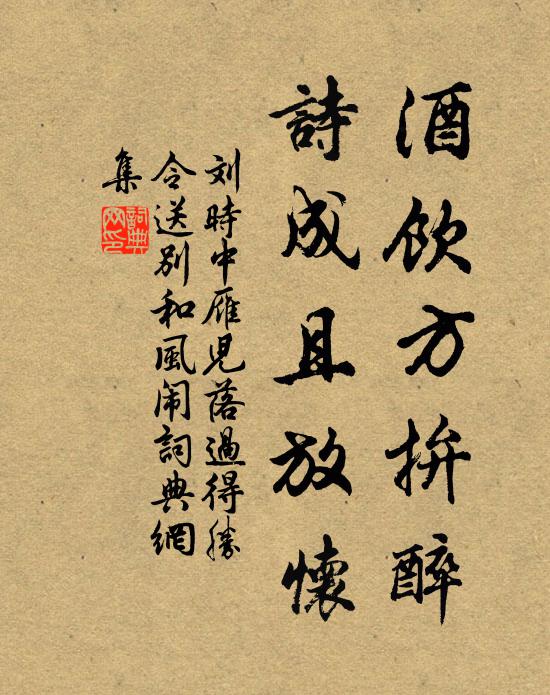 酒飲方拚醉
詩成且放懷
刘時中雁児落過得勝
令送別和風闹詞典網
集
詞典網印